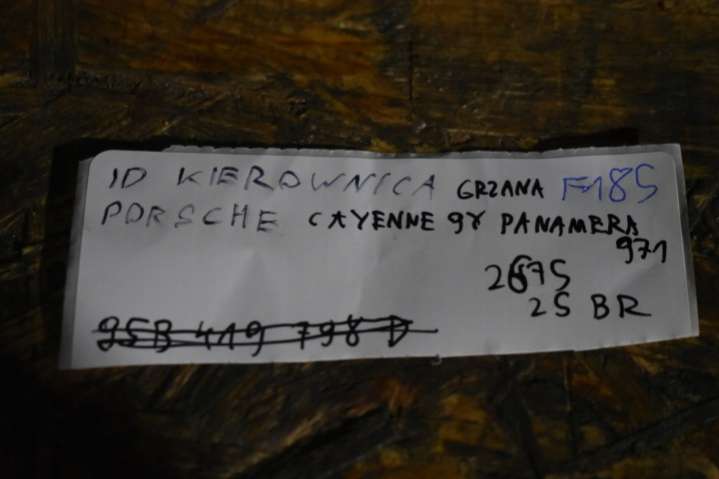 ID KIEROWNICA GRZANA F185
PORSCHE CAYENNE 9Y PANAMERA
971
2675
25 BR
95B 419 798 D